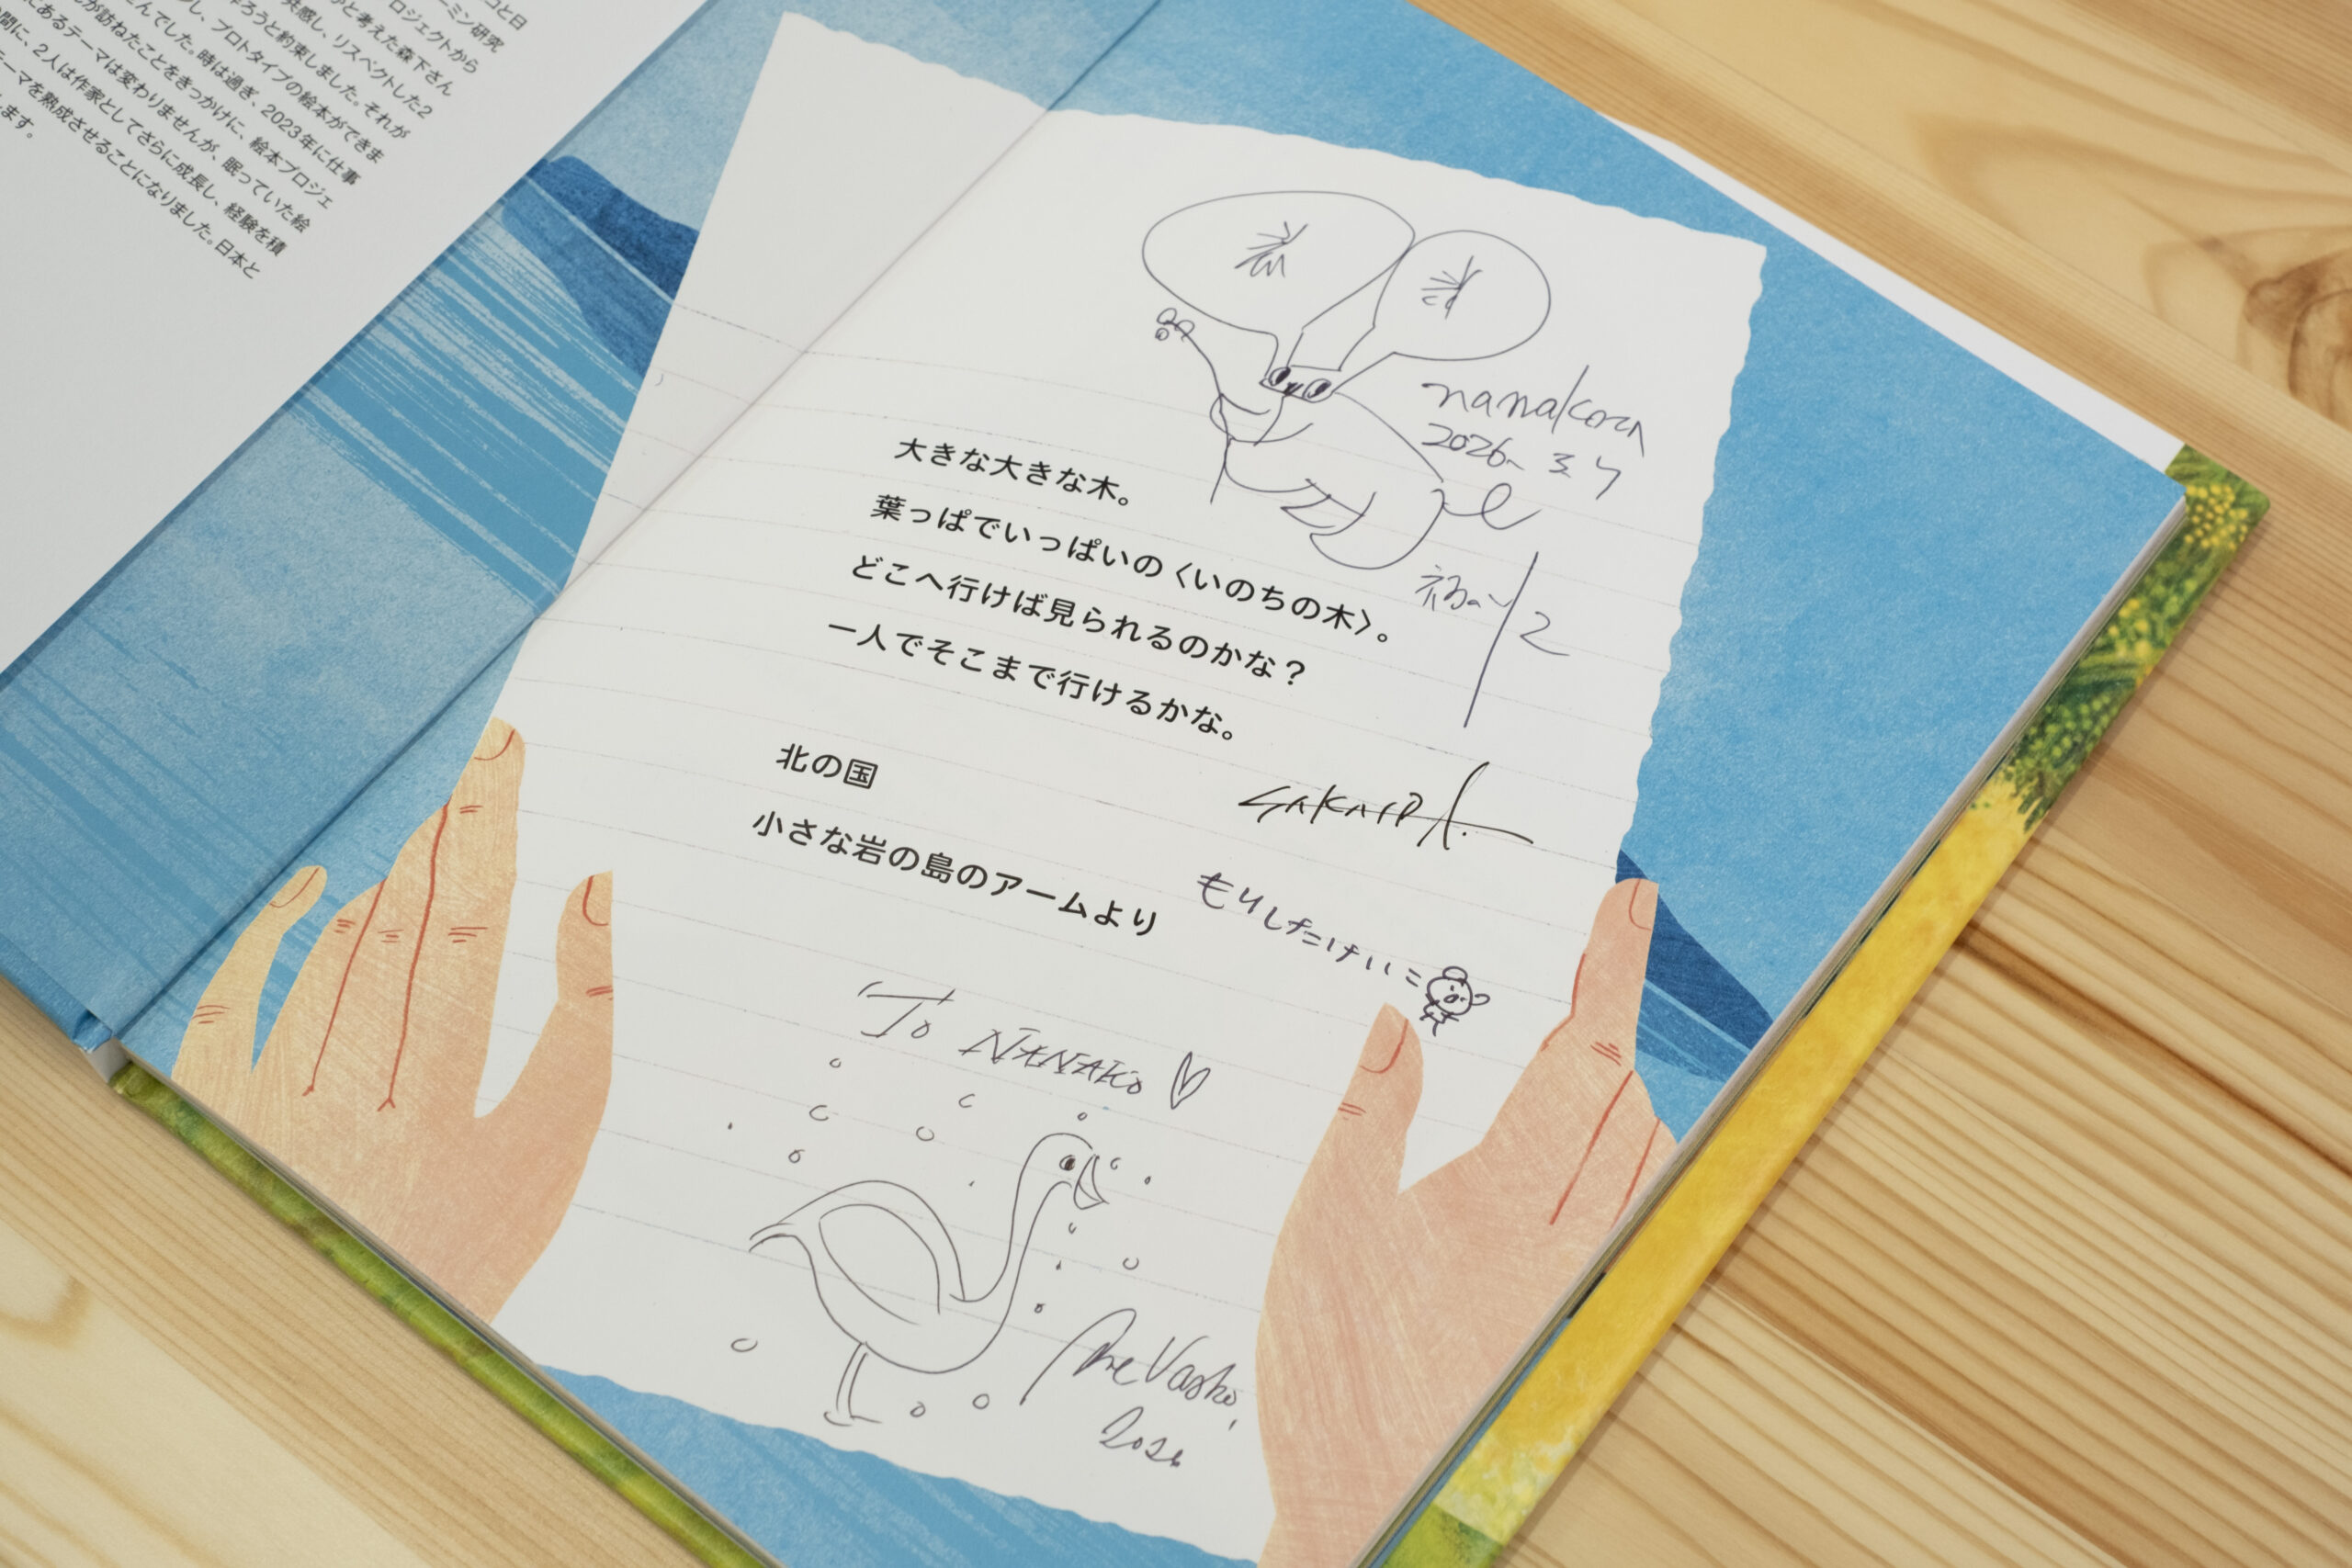 コと日
ーミン研究
ロジェクトから
かと考えた森下さん
共感し、リスペクトした2
作ろうと約束しました。それが
し、プロトタイプの絵本ができま
んでした。時は過ぎ、2023年に仕事
が訪ねたことをきっかけに、絵本プロジェ
にあるテーマは変わりませんが、眠っていた絵
間に、2人は作家としてさらに成長し、経験を積
テーマを熟成させることになりました。日本と
ます。
大きな大きな木。
葉っぱでいっぱいの〈いのちの木〉。
どこへ行けば見られるのかな？
一人でそこまで行けるかな。
北の国
小さな岩の島のアームより
nanakoさん
2026. 3 7
もりしたけいこ
To NANAKO
Vasko,